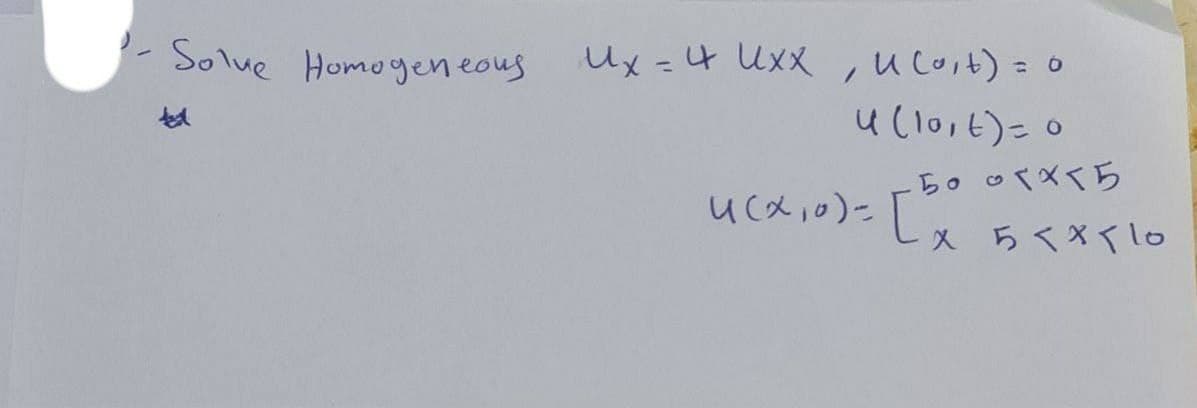 - Solve Homogeneous Ux = 4 Uxx , u(0,t) = 0
u(10,t) = 0
u(x,0) = [ 50 0<x<5
x 5<x<10